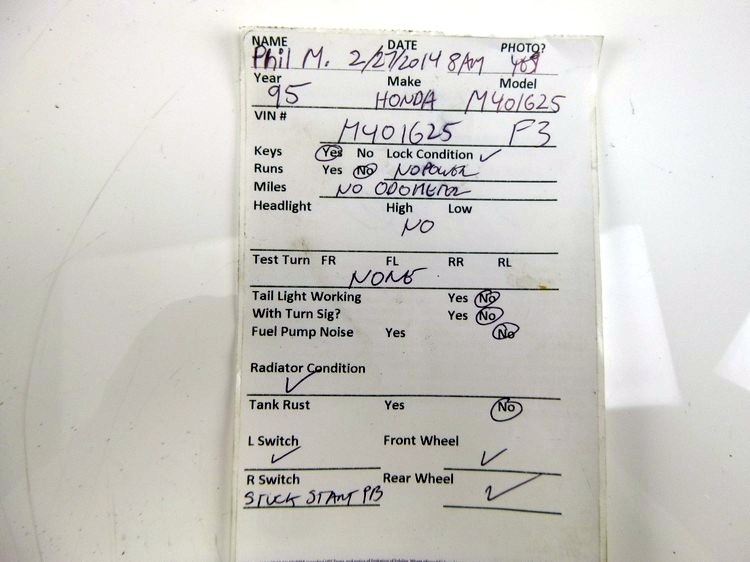 NAME DATE PHOTO?
Phil M. 2/27/2014 8AM yes
Year Make Model
95 HONDA M401625
VIN #
M401625 F3
Keys Yes No Lock Condition ✓
Runs Yes No NO POWER
Miles NO ODOMETER
Headlight High Low
NO
Test Turn FR FL RR RL
NONE
Tail Light Working Yes No
With Turn Sig? Yes No
Fuel Pump Noise Yes No
Radiator Condition
✓
Tank Rust Yes No
L Switch Front Wheel
✓ ✓
R Switch Rear Wheel
STUCK START PB ✓